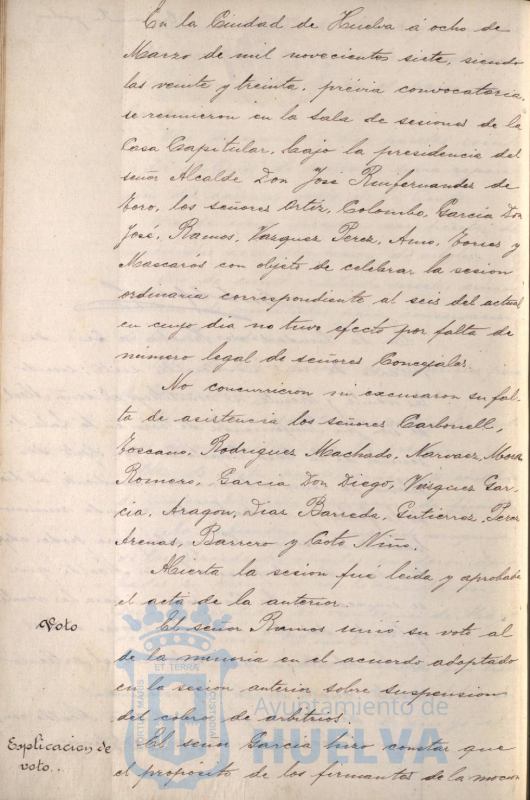 En la Ciudad de Huelva á ocho de
Marzo de mil novecientos siete, siendo
las veinte y treinta, prévia convocatoria,
se reunieron en la Sala de sesiones de la
Casa Capitular, bajo la presidencia del
señor Alcalde Don José Ruifernandez de
Tero, los señores Ortiz, Colombo, Garcia Don
José, Ramos, Vazquez Perez, Amo, Torres y
Mascarós con objeto de celebrar la sesion
ordinaria correspondiente al seis del actual
en cuyo dia no tuvo efecto por falta de
número legal de señores Concejales.
No concurrieron ni excusaron su fal-
ta de asistencia los señores Carbonell,
Toscano, Rodriguez Machado, Narvaez, Mora
Romero, Garcia Don Diego, Vazquez Gar-
cia, Aragon, Diaz Barreda, Gutierrez, Perez
Arenas, Barrero y Coto Niño.
Abierta la sesion fué leida y aprobada
el acta de la anterior.
Voto
El señor Ramos unió su voto al
de la minoria en el acuerdo adoptado
en la sesion anterior sobre suspension
del cobro de arbitrios.
Esplicacion de
voto.
El señor Garcia hizo constar que
el propósito de los firmantes de la mocion
PORTUS MARIS
ET TERRAE
CUSTODIA
Ayuntamiento de
HUELVA